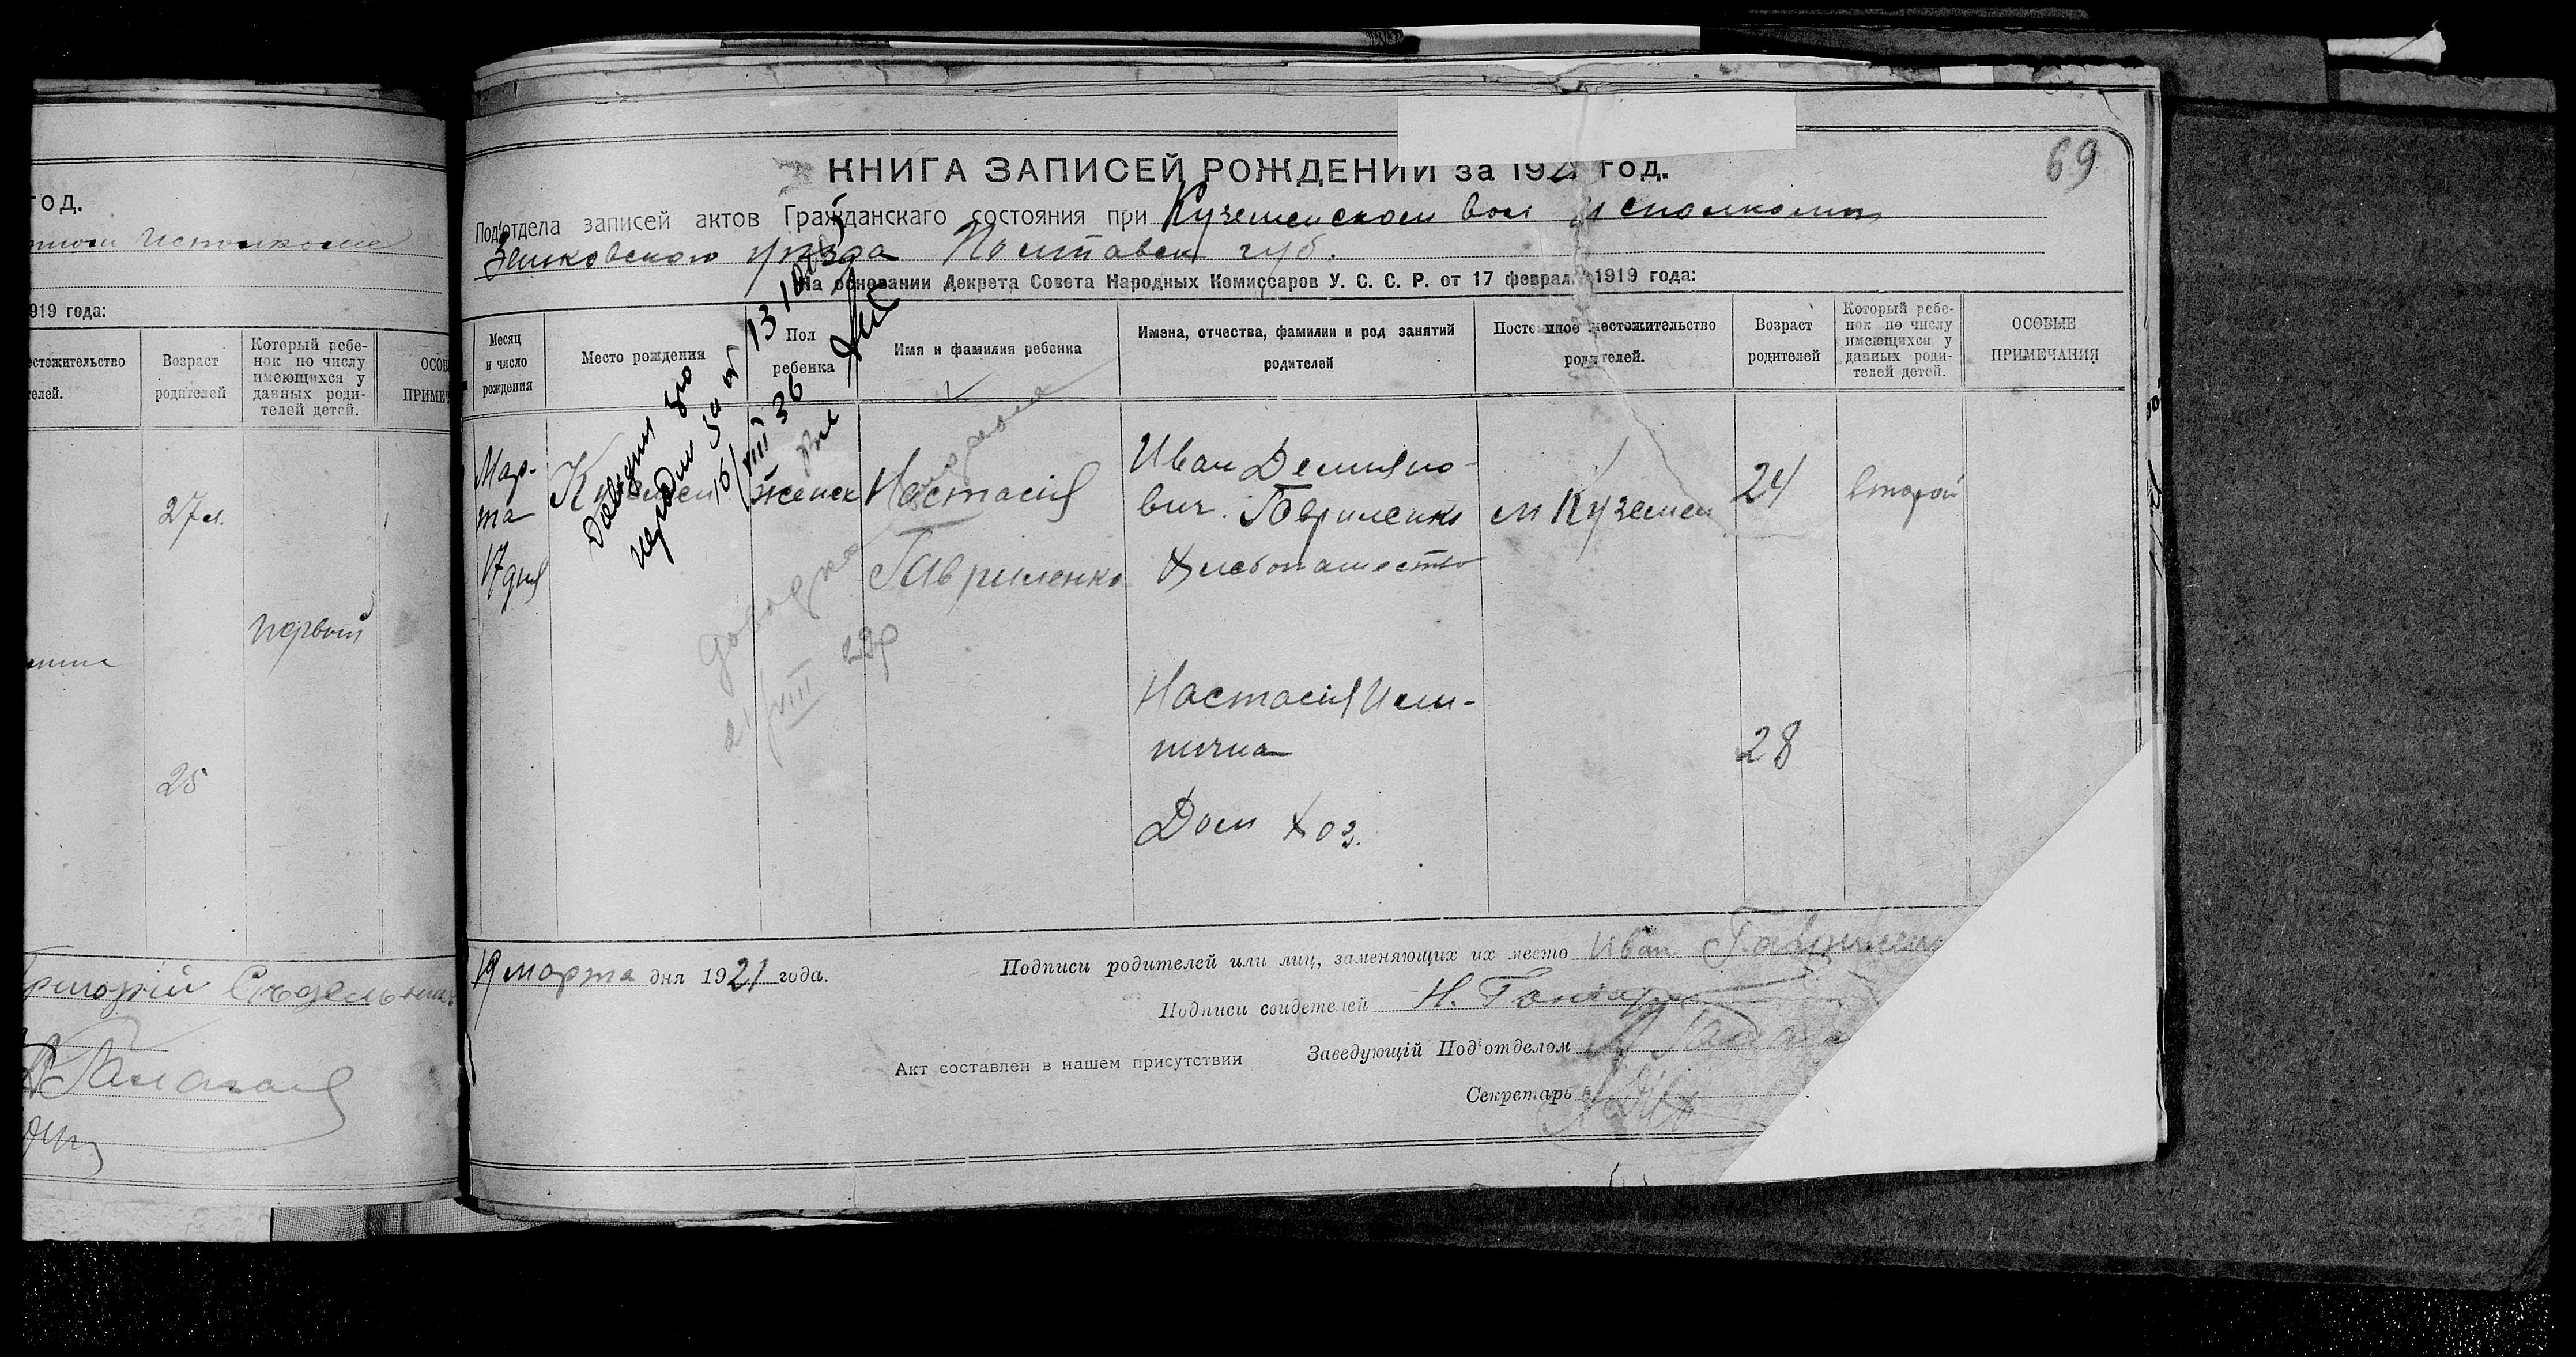 год.
Исполкоме
919 года:
естожительство
телей.
Возраст
родителей
Который ребе-
нок по числу
имеющихся у
данных роди-
телей детей.
ОСОБ
ПРИМЕЧ
27 л.
первый
25
69
КНИГА ЗАПИСЕЙ РОЖДЕНИЙ за 1921 год.
Под'отдела записей актов Гражданскаго состояния при Куземенском вол исполкоми
Зеньковского уезда Полтавск губ.
На основании Декрета Совета Народных Комиссаров У. С. С. Р. от 17 феврал. 1919 года:
Месяц
и число
рождения
Место рождения
Пол
ребенка
Имя и фамилия ребенка
Имена, отчества, фамилии и род занятий
родителей
Постоянное местожительство
родителей.
Возраст
родителей
Который ребе-
нок по числу
имеющихся у
данных роди-
телей детей.
ОСОБЫЕ
ПРИМЕЧАНИЯ
Мар-
та
17 дня
Куземен
женск
Настасія
Гавриленко
Иван Демяно-
вич Гавриленко
Хлебопашество
м Куземен
24
второй
Настасія
28
Дом Хоз.
16/VIII 36
21/VIII 29р
19 марта дня 1921 года.
Подписи родителей или лиц, заменяющих их место Иван Гавриленк
Подписи свидетелей Н.
Акт составлен в нашем присутствии
Заведующій Под'отделом
Секретарь